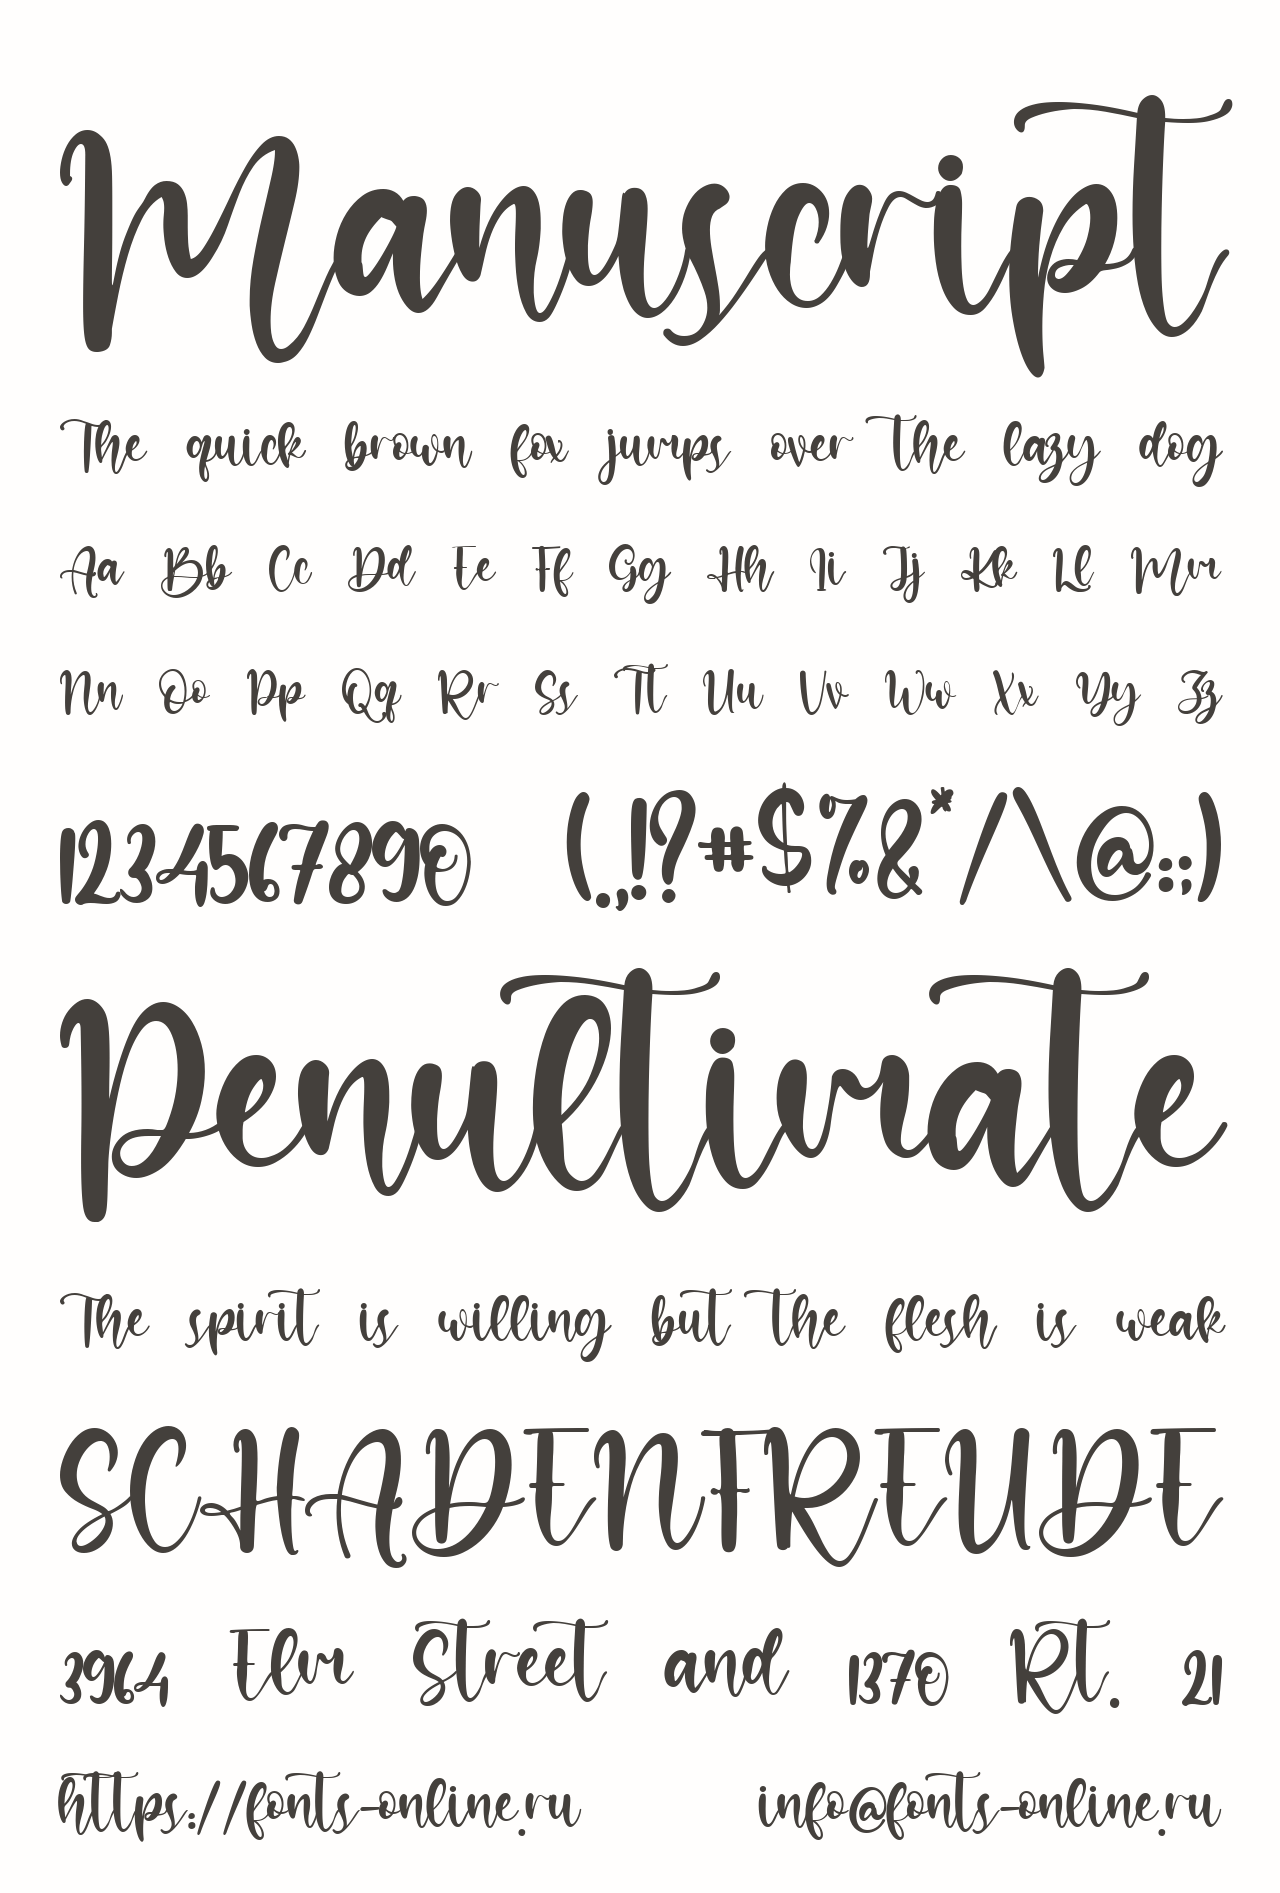 Manuscript
The quick brown fox jumps over the lazy dog
Aa Bb Cc Dd Ee Ff Gg Hh Ii Jj Kk Ll Mm
Nn Oo Pp Qq Rr Ss Tt Uu Vv Ww Xx Yy Zz
1234567890 (.,!?#$%&*/\@:;)
Penultimate
The spirit is willing but the flesh is weak
SCHADENFREUDE
3964 Elm Street and 1370 Rt. 21
https://fonts-online.ru info@fonts-online.ru